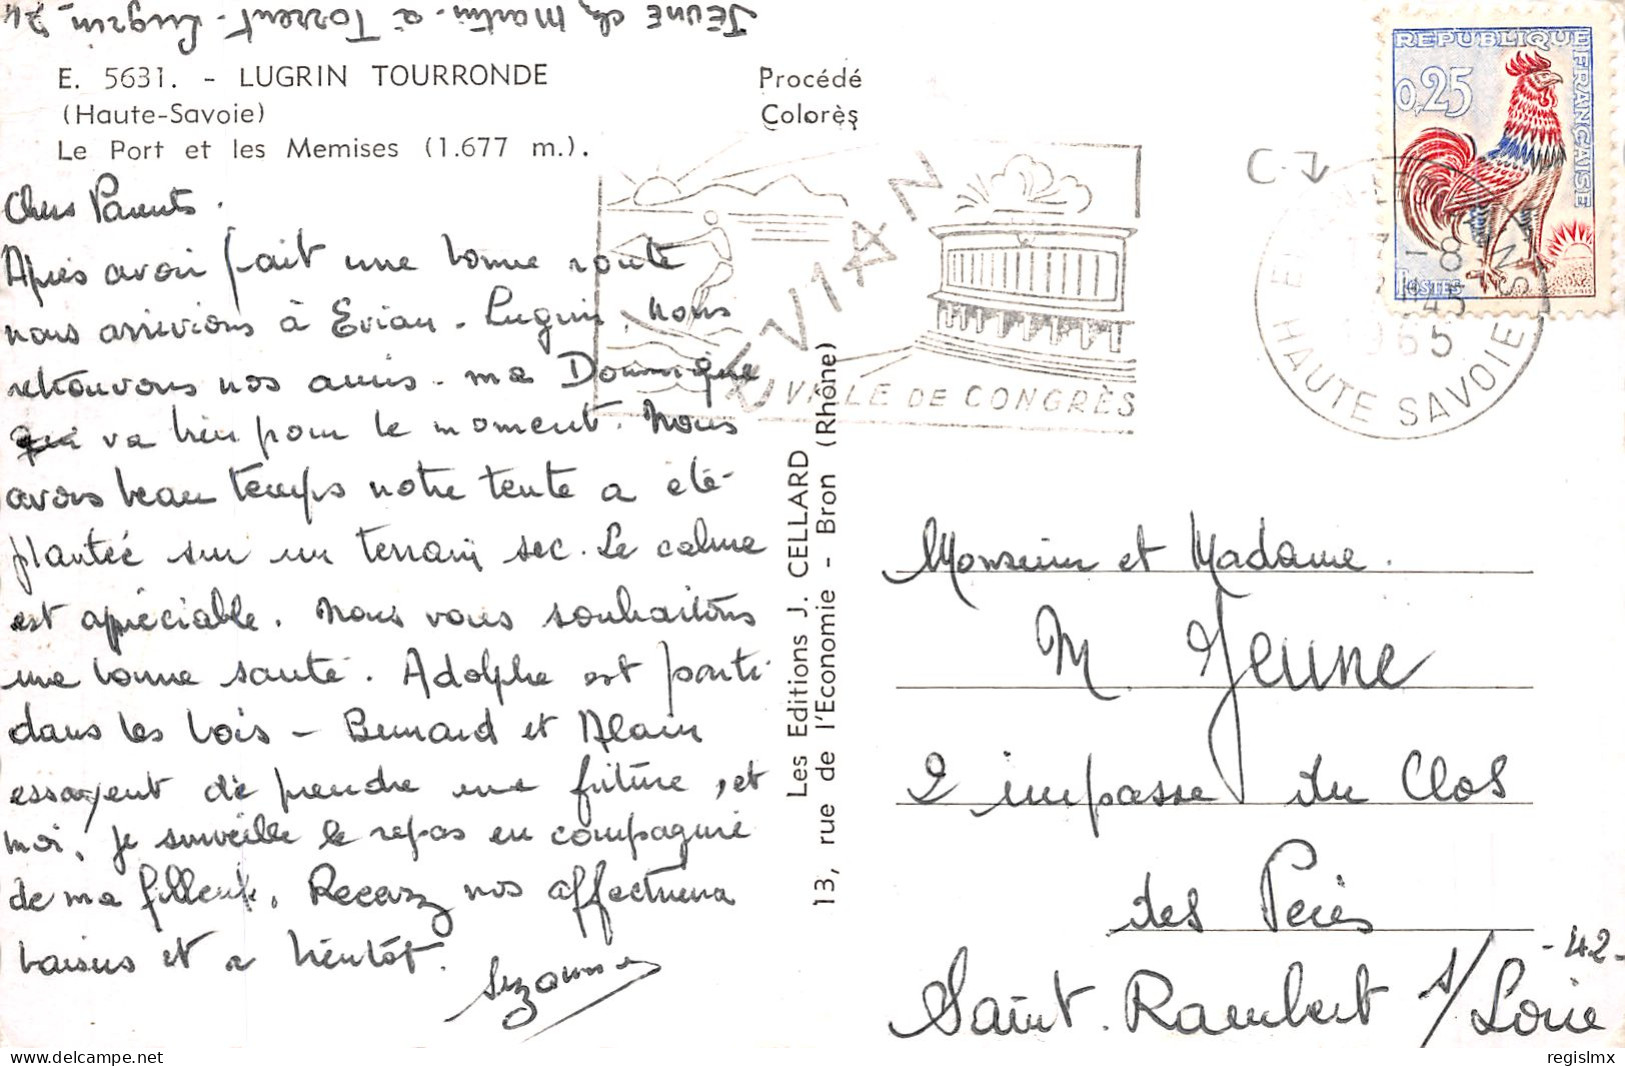 Jeune chez Martin - à Torrent - Lugrin - 74
E. 5631. - LUGRIN TOURRONDE
(Haute-Savoie)
Le Port et les Memises (1.677 m.).
Procédé
Colorès
Chers Parents.
Après avoir fait une bonne route
nous arrivions à Evian - Lugrin, nous
retrouvons nos amis - ma Dominique
va bien pour le moment. Nous
avons beau temps notre tente a été
plantée sur un terrain sec. Le calme
est apréciable. Nous vous souhaitons
une bonne santé. Adolphe est parti
dans les bois - Bernard et Alain
essayent de prendre une friture, et
moi, je surveille le repas en compagnie
de ma fillente. Recevez nos affectueux
baisers et a bientôt.
Suzanne
Les Editions J. CELLARD
13, rue de l'Economie - Bron (Rhône)
EVIAN
VILLE DE CONGRÈS
C7
REPUBLIQUE FRANCAISE
0,25
POSTES
-8
1965
HAUTE SAVOIE
Monsieur et Madame.
M. Jeune
2 impasse du Clos
des Peiès
Saint. Rambert s/Loire
-42-
regislmx